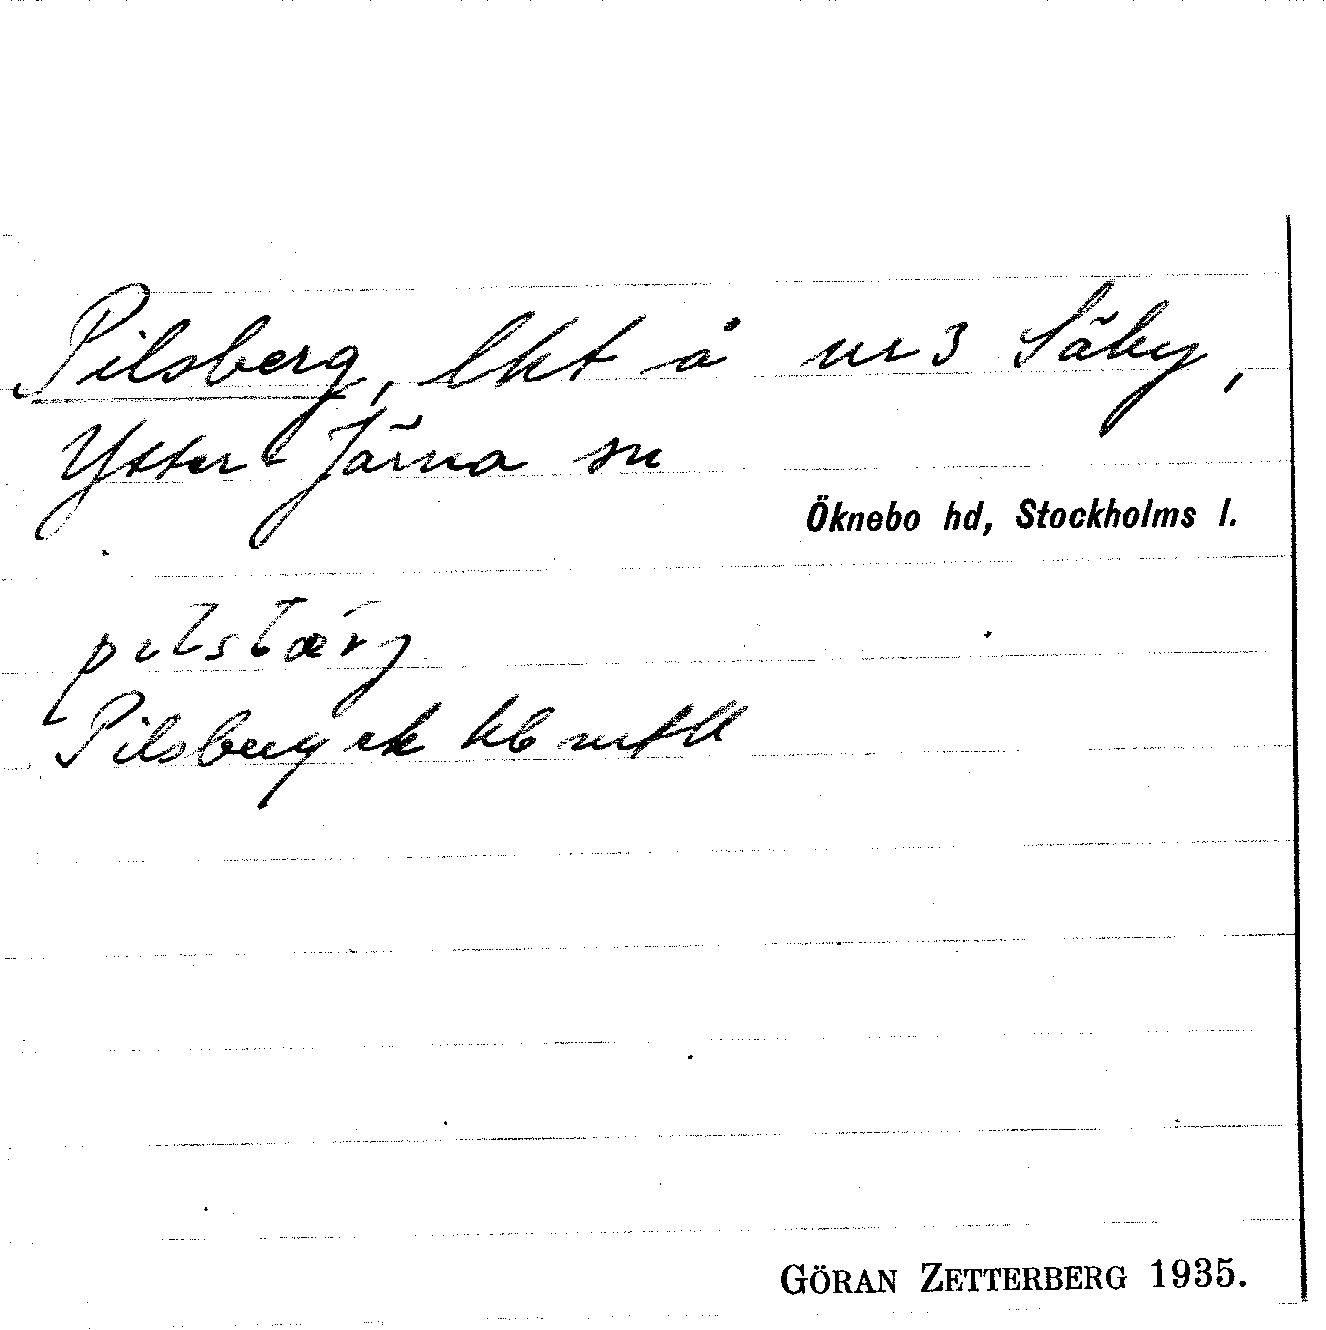 Pilsberg, lht å nr 3 Säby,
Ytter-Järna sn
Öknebo hd, Stockholms l.
pilsbærj
Pilsberg ek kb mtll
GÖRAN ZETTERBERG 1935.